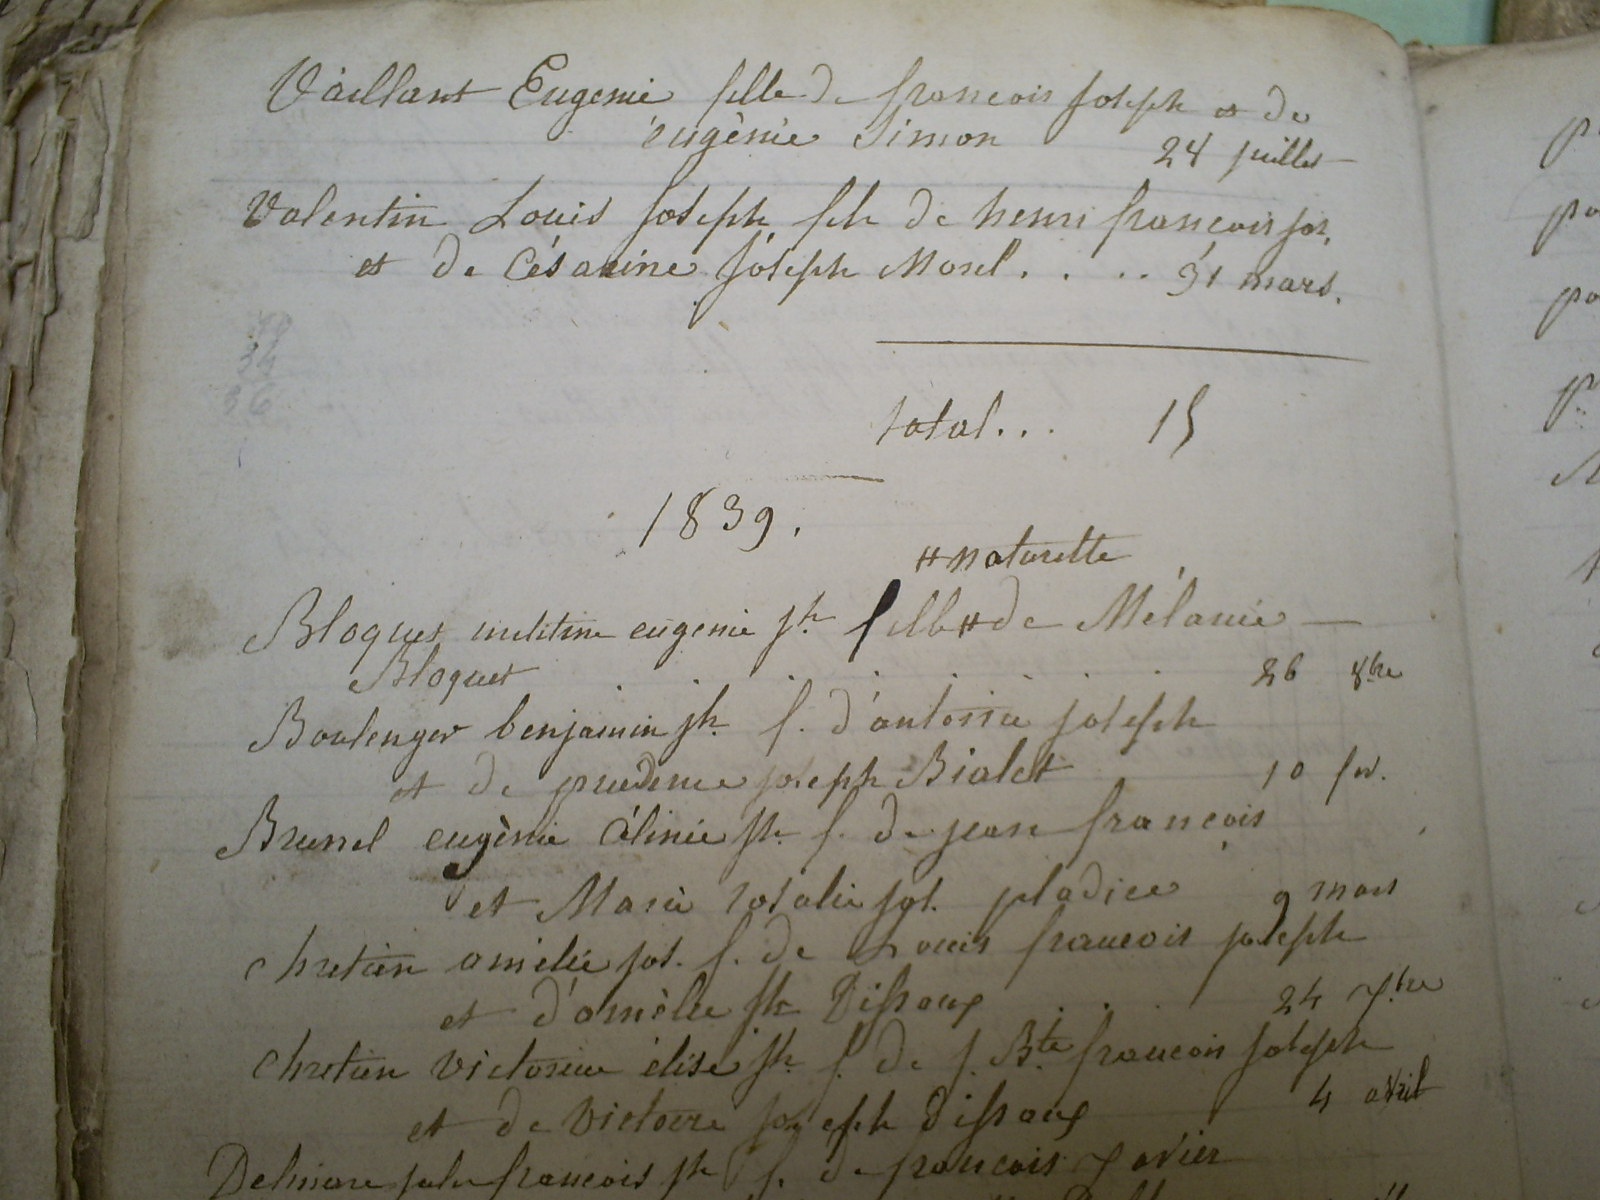 Vaillant Eugenie fille de francois joseph et de
eugènie Simon 24 juillet
Valentin Louis joseph fils de henri françois jos.
et de Césarine joseph Morel . . . . 31 mars.
total... 15
1839.
#naturelle
Bloquet eugenie jh. fille # de Mélanie
Bloquet . . . . . . 26 8bre
Boulenger benjamin jh. f. d'antoine joseph
et de prudence joseph Bialet 10 fév.
Brunel eugènie Célinie jh. f. de jean françois
et Marie rosalie jos. pladiee 9 mars
chretien amélie jos. f. de Louis francois joseph
et d'amèlie jh Dissaux . . . 24 7bre
chretien Victorine élise jh. f. de j. Bte francois joseph
et de Victoire joseph Dissaux 4 avril
jules francois jh f. de francois xavier